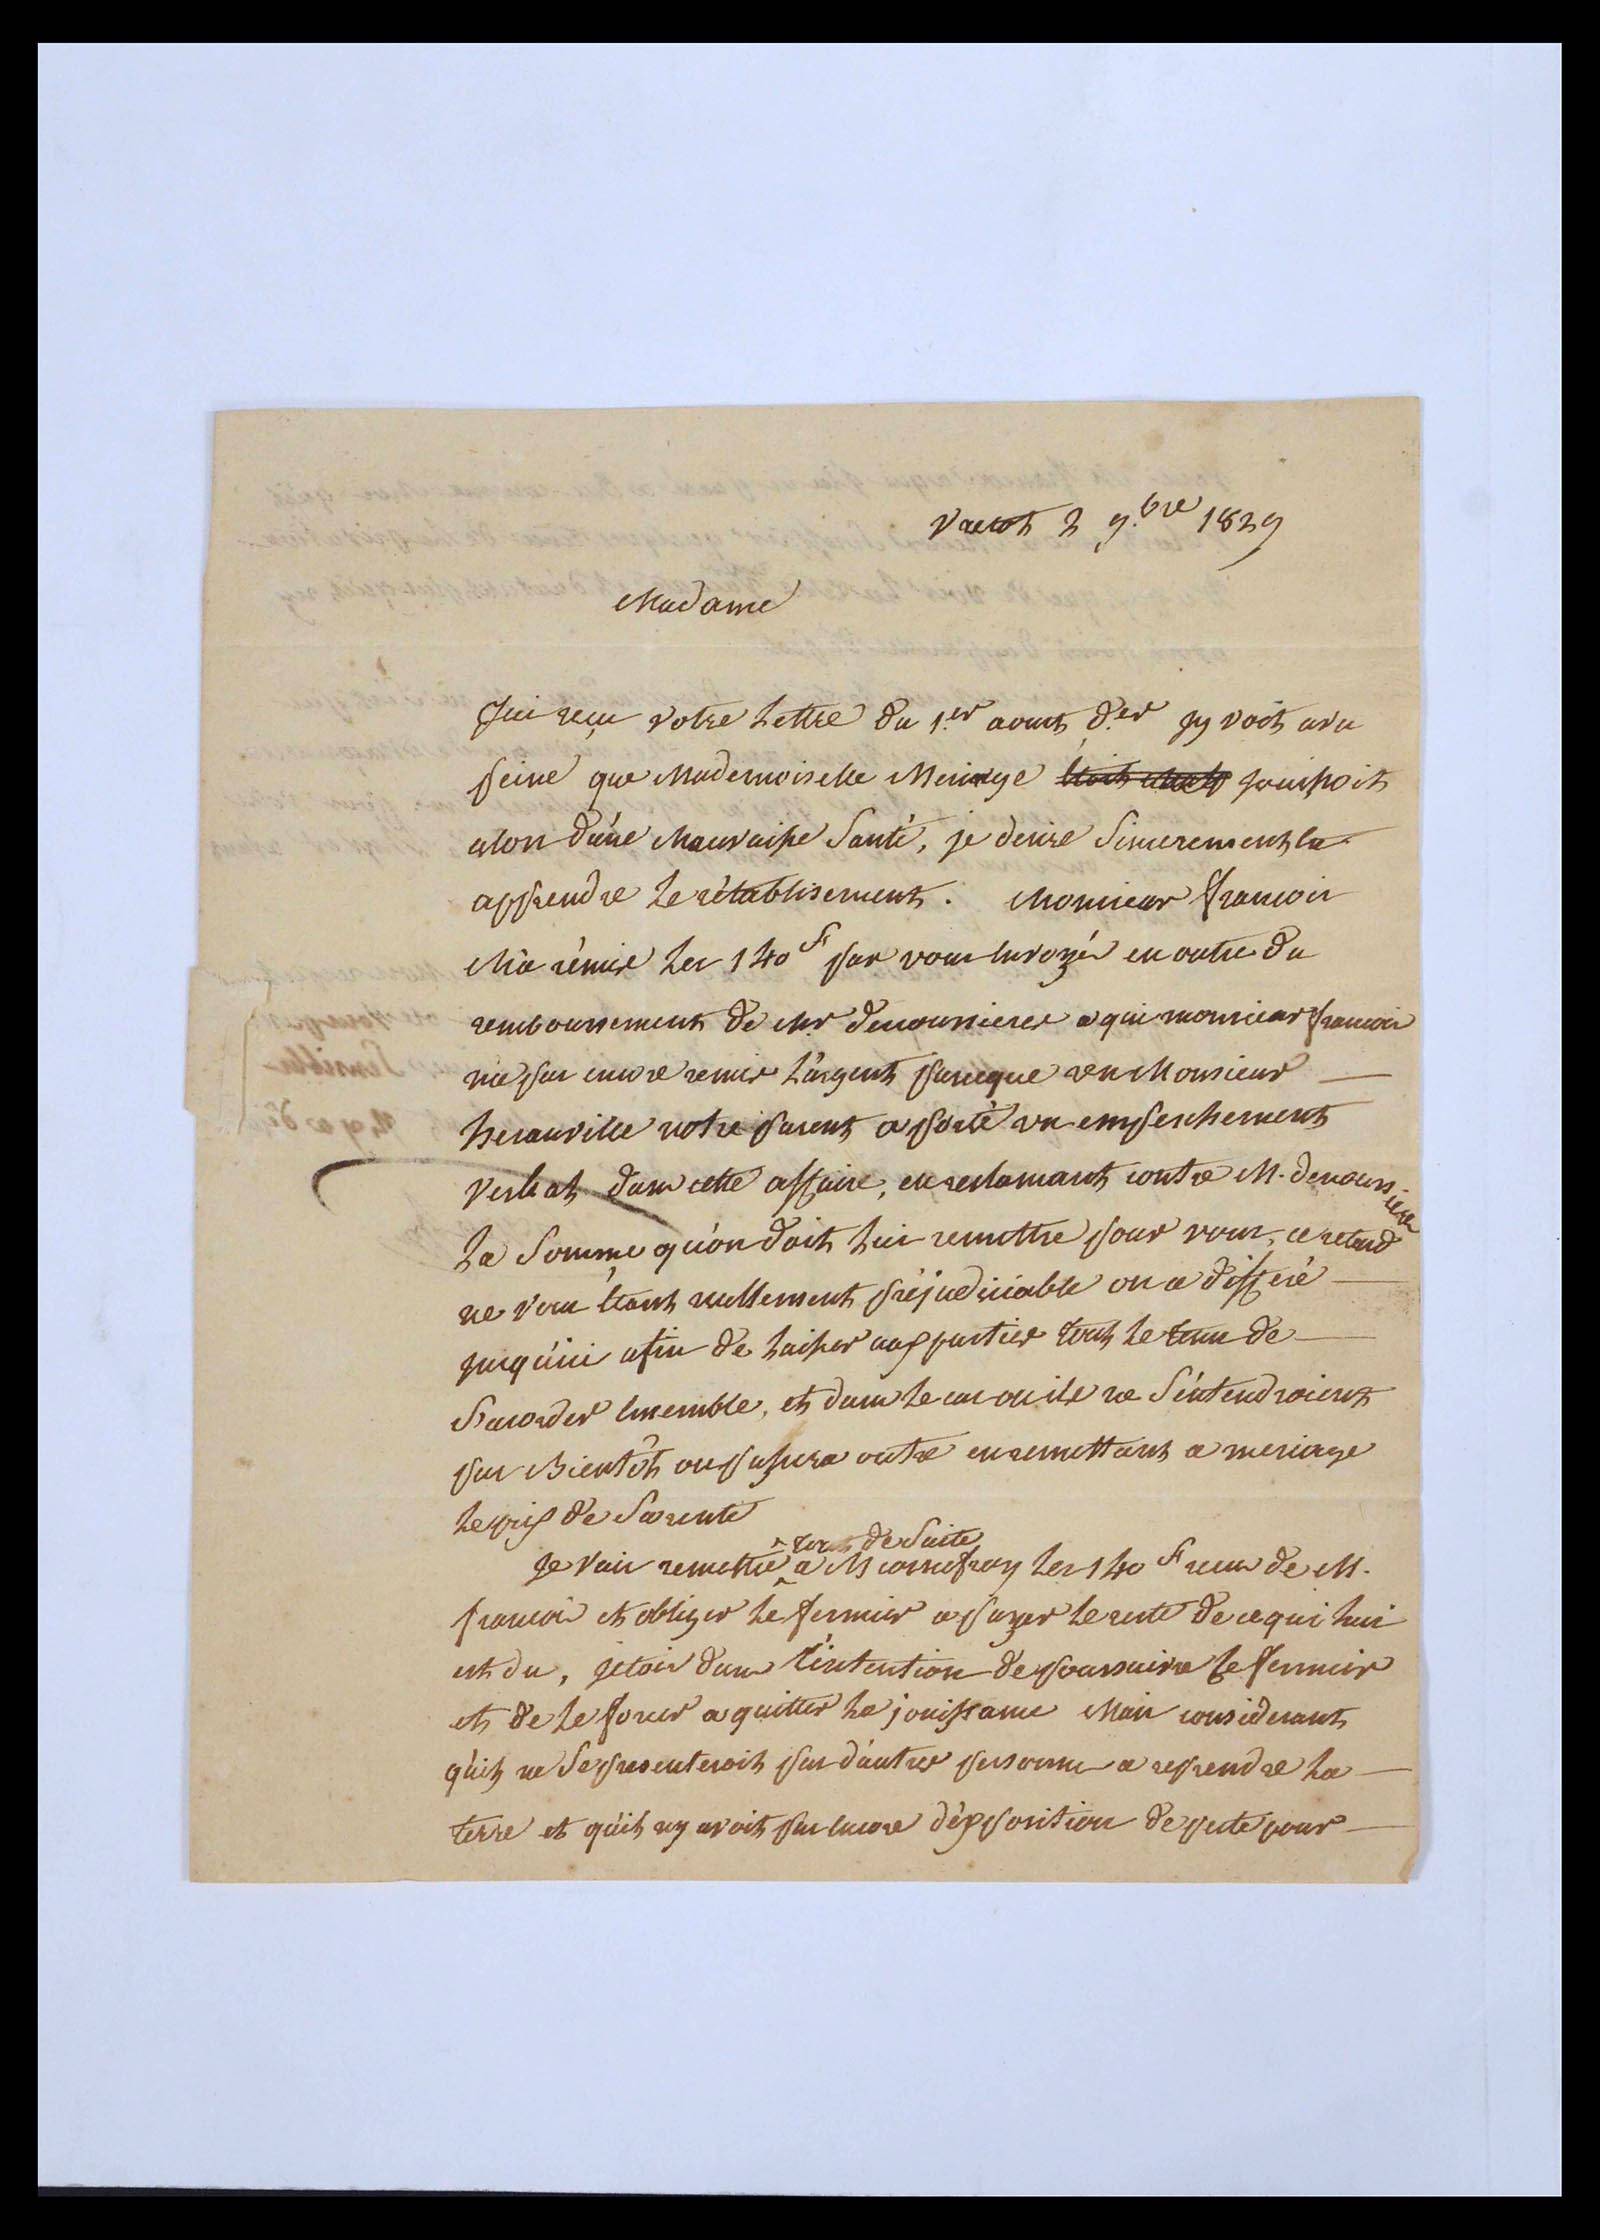 Valcot 2 9.bre 1829
Madame
J'ai reçu votre Lettre du 1.er aout d.er J'y voit avec
peine que Mademoiselle Meriage jouissoit
alors d'une Mauvaise Santé, je desire Sincerement en
apprendre Le rétablisement. Monsieur françois
M'a rémis Les 140 f par vous Envoyés en outre du
remboursement de Mr denoussieres a qui monsieur françois
n'a pas encore remis L'argent parceque un Monsieur
herauville notre parent a porté un empeschement
verbal dans cette affaire, en reclamant contre M. denoussieres
La Somme qu'on doit Lui remettre pour vous, ce retard
ne vous Etant nullement préjudiciable on a differé
jusqu'ici afin de Laisser aux parties tout Le tems de
S'acorder Ensemble, et dans Le cas ou ils ne S'entendroient
pas Bientôt on passera outre en remettant a meriage
Le prix de Sa rente
tout de Suite
Je vais remettre a M cornefroy Les 140 f recus de M.
françois et obliger Le fermier a payer Le reste de ce qui Lui
est du, j'etois dans L'intention de poursuivre Le fermier
et de Le forcer a quitter La jouissance Mais considerant
qu'il ne Se presenteroit pas d'autres personnes a reprendre La
terre et qu'il n'y avoit pas Encore d'exposition de faite pour